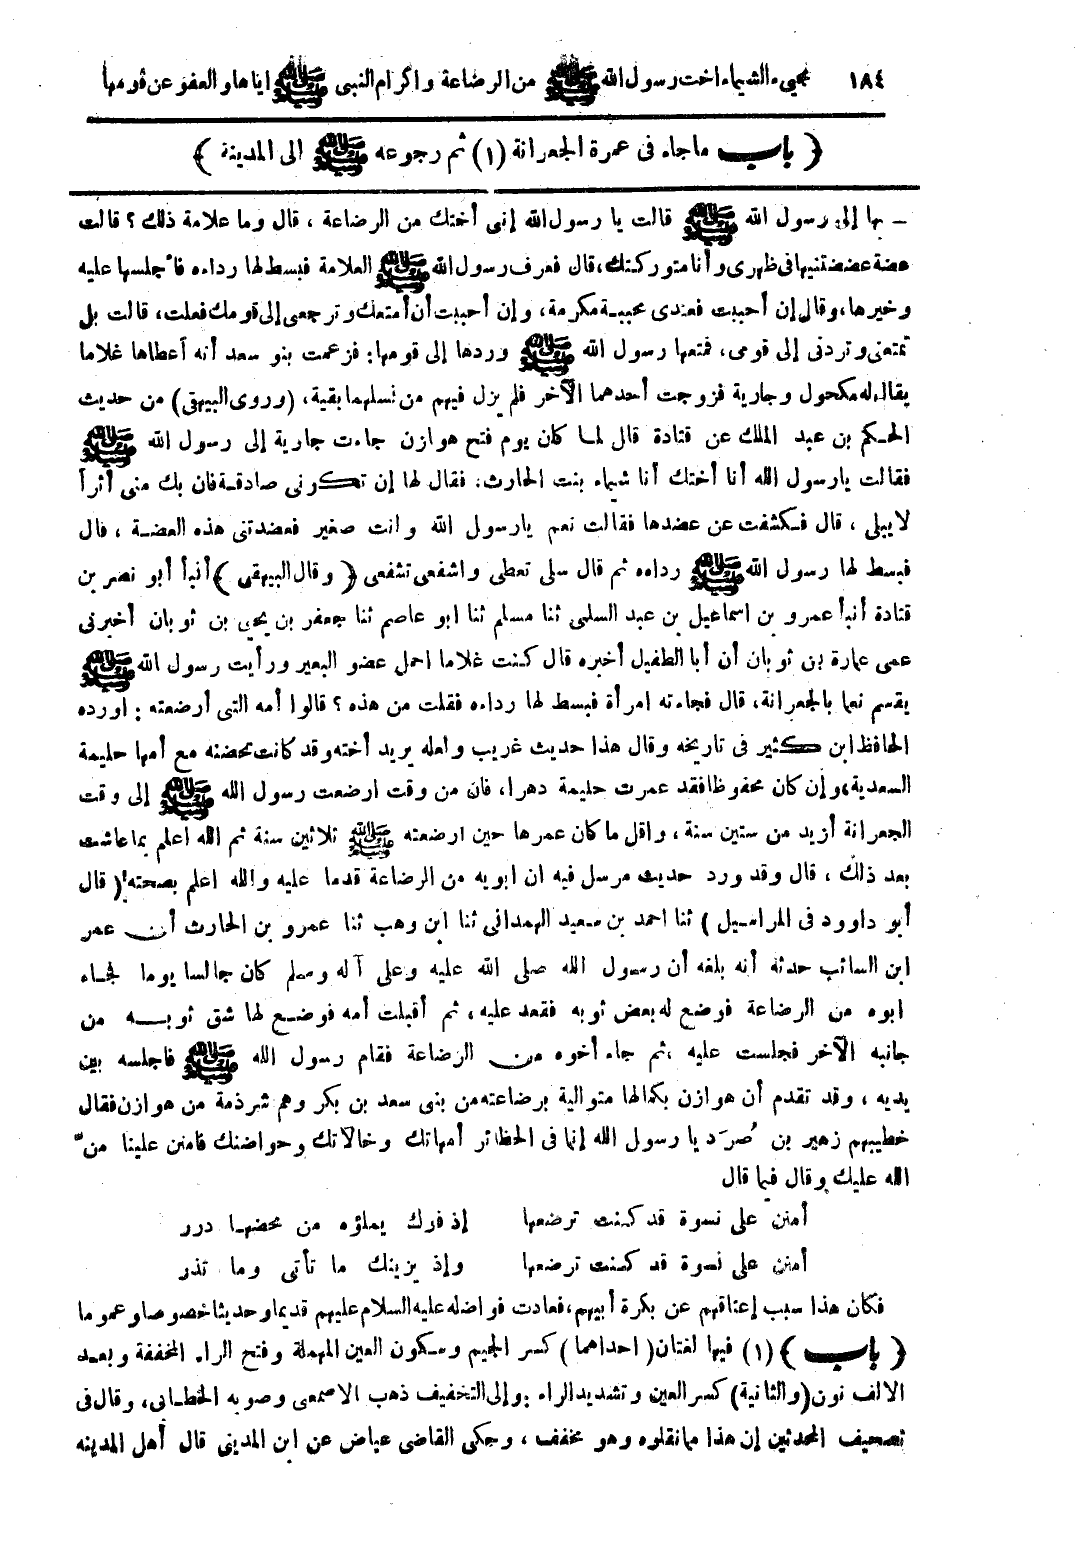 ١٨٤ مجيء الشيماء اخت رسول الله ﷺ من الرضاعة واكرام النبى ﷺ اياها والعفو عن قومها
﴿ باب ماجاء فى عمرة الجعرانة (١) ثم رجوعه ﷺ الى المدينة ﴾
ـ بها إلى رسول الله ﷺ قالت يا رسول الله إنى أختك من الرضاعة ، قال وما علامة ذلك ؟ قالت
عضة عضضتنيها فى ظهرى وأنا متوركتك، قال فعرف رسول الله ﷺ العلامة فبسط لها رداءه فأجلسها عليه
وخيرها، وقال إن أحببت فعندى محببة مكرمة، وإن أحببت أن أمتعك وترجعى إلى قومك فعلت، قالت بل
تمتعنى وتردنى إلى قومى، فمتعها رسول الله ﷺ وردها إلى قومها: فزعمت بنو سعد أنه أعطاها غلاما
يقال له مكحول وجارية فزوجت أحدهما الآخر فلم يزل فيهم من نسلهما بقية، (وروى البيهقى) من حديث
الحكم بن عبد الملك عن قتادة قال لما كان يوم فتح هوازن جاءت جارية إلى رسول الله ﷺ
فقالت يارسول الله أنا أختك أنا شيماء بنت الحارث: فقال لها إن تكونى صادقة فان بك منى أثرا
لايبلى ، قال فكشفت عن عضدها فقالت نعم يارسول الله وانت صغير فعضدتنى هذه العضة ، قال
فبسط لها رسول الله ﷺ رداءه ثم قال سلى تعطى واشفعى تشفعى ﴿ وقال البيهقى ﴾ أنبأ أبو نصر بن
قتادة أنبأ عمرو بن اسماعيل بن عبد السلمى ثنا مسلم ثنا ابو عاصم ثنا جعفر بن يحيى بن ثوبان أخبرنى
عمى عمارة بن ثوبان أن أبا الطفيل أخبره قال كنت غلاما احمل عضو البعير ورأيت رسول الله ﷺ
يقسم نعما بالجعرانة، قال فجاءته امرأة فبسط لها رداءه فقلت من هذه ؟ قالوا أمه التى أرضعته : اورده
الحافظ ابن كثير فى تاريخه وقال هذا حديث غريب ولعله يريد أخته وقد كانت تحضنه مع أمها حليمة
السعدية، وإن كان محفوظا فقد عمرت حليمة دهرا، فان من وقت ارضعت رسول الله ﷺ إلى وقت
الجعرانة أزيد من ستين سنة ، واقل ما كان عمرها حين ارضعته ﷺ ثلاثين سنة ثم الله اعلم بما عاشت
بعد ذلك ، قال وقد ورد حديث مرسل فيه ان ابويه من الرضاعة قدما عليه والله اعلم بصحته ( قال
أبو داوود فى المراسيل ) ثنا احمد بن سعيد الهمدانى ثنا ابن وهب ثنا عمرو بن الحارث أن عمر
ابن السائب حدثه أنه بلغه أن رسول الله صلى الله عليه وعلى آله وسلم كان جالسا يوما فجاء
ابوه من الرضاعة فوضع له بعض ثوبه فقعد عليه، ثم أقبلت أمه فوضع لها شق ثوبه من
جانبه الآخر فجلست عليه ،ثم جاء أخوه من الرضاعة فقام رسول الله ﷺ فاجلسه بين
يديه ، وقد تقدم أن هوازن بكمالها متوالية برضاعته من بنى سعد بن بكر وهم شرذمة من هوازن فقال
خطيبهم زهير بن صُرَد يا رسول الله إنما فى الحظائر أمهاتك وخالاتك وحواضنك فامنن علينا منّ
الله عليك وقال فيما قال
أمنن على نسوة قد كنت ترضعها إذ فوك يملؤه من محضها درر
أمنن على نسوة قد كنت ترضعها وإذ يزينك ما تأتى وما تذر
فكان هذا سبب إعتاقهم عن بكرة أبيهم، فعادت فواضله عليه السلام عليهم قديما وحديثا خصوصا وعموما
﴿ باب ﴾ (١) فيها لغتان (احداهما) كسر الجيم وسكون العين المهملة وفتح الراء المخففة وبعد
الالف نون (والثانية) كسر العين وتشديد الراء: وإلى التخفيف ذهب الاصمعى وصوبه الخطابى، وقال فى
تصحيف المحدثين إن هذا مما نقلوه وهو مخفف ، وحكى القاضى عياض عن ابن المدينى قال أهل المدينه